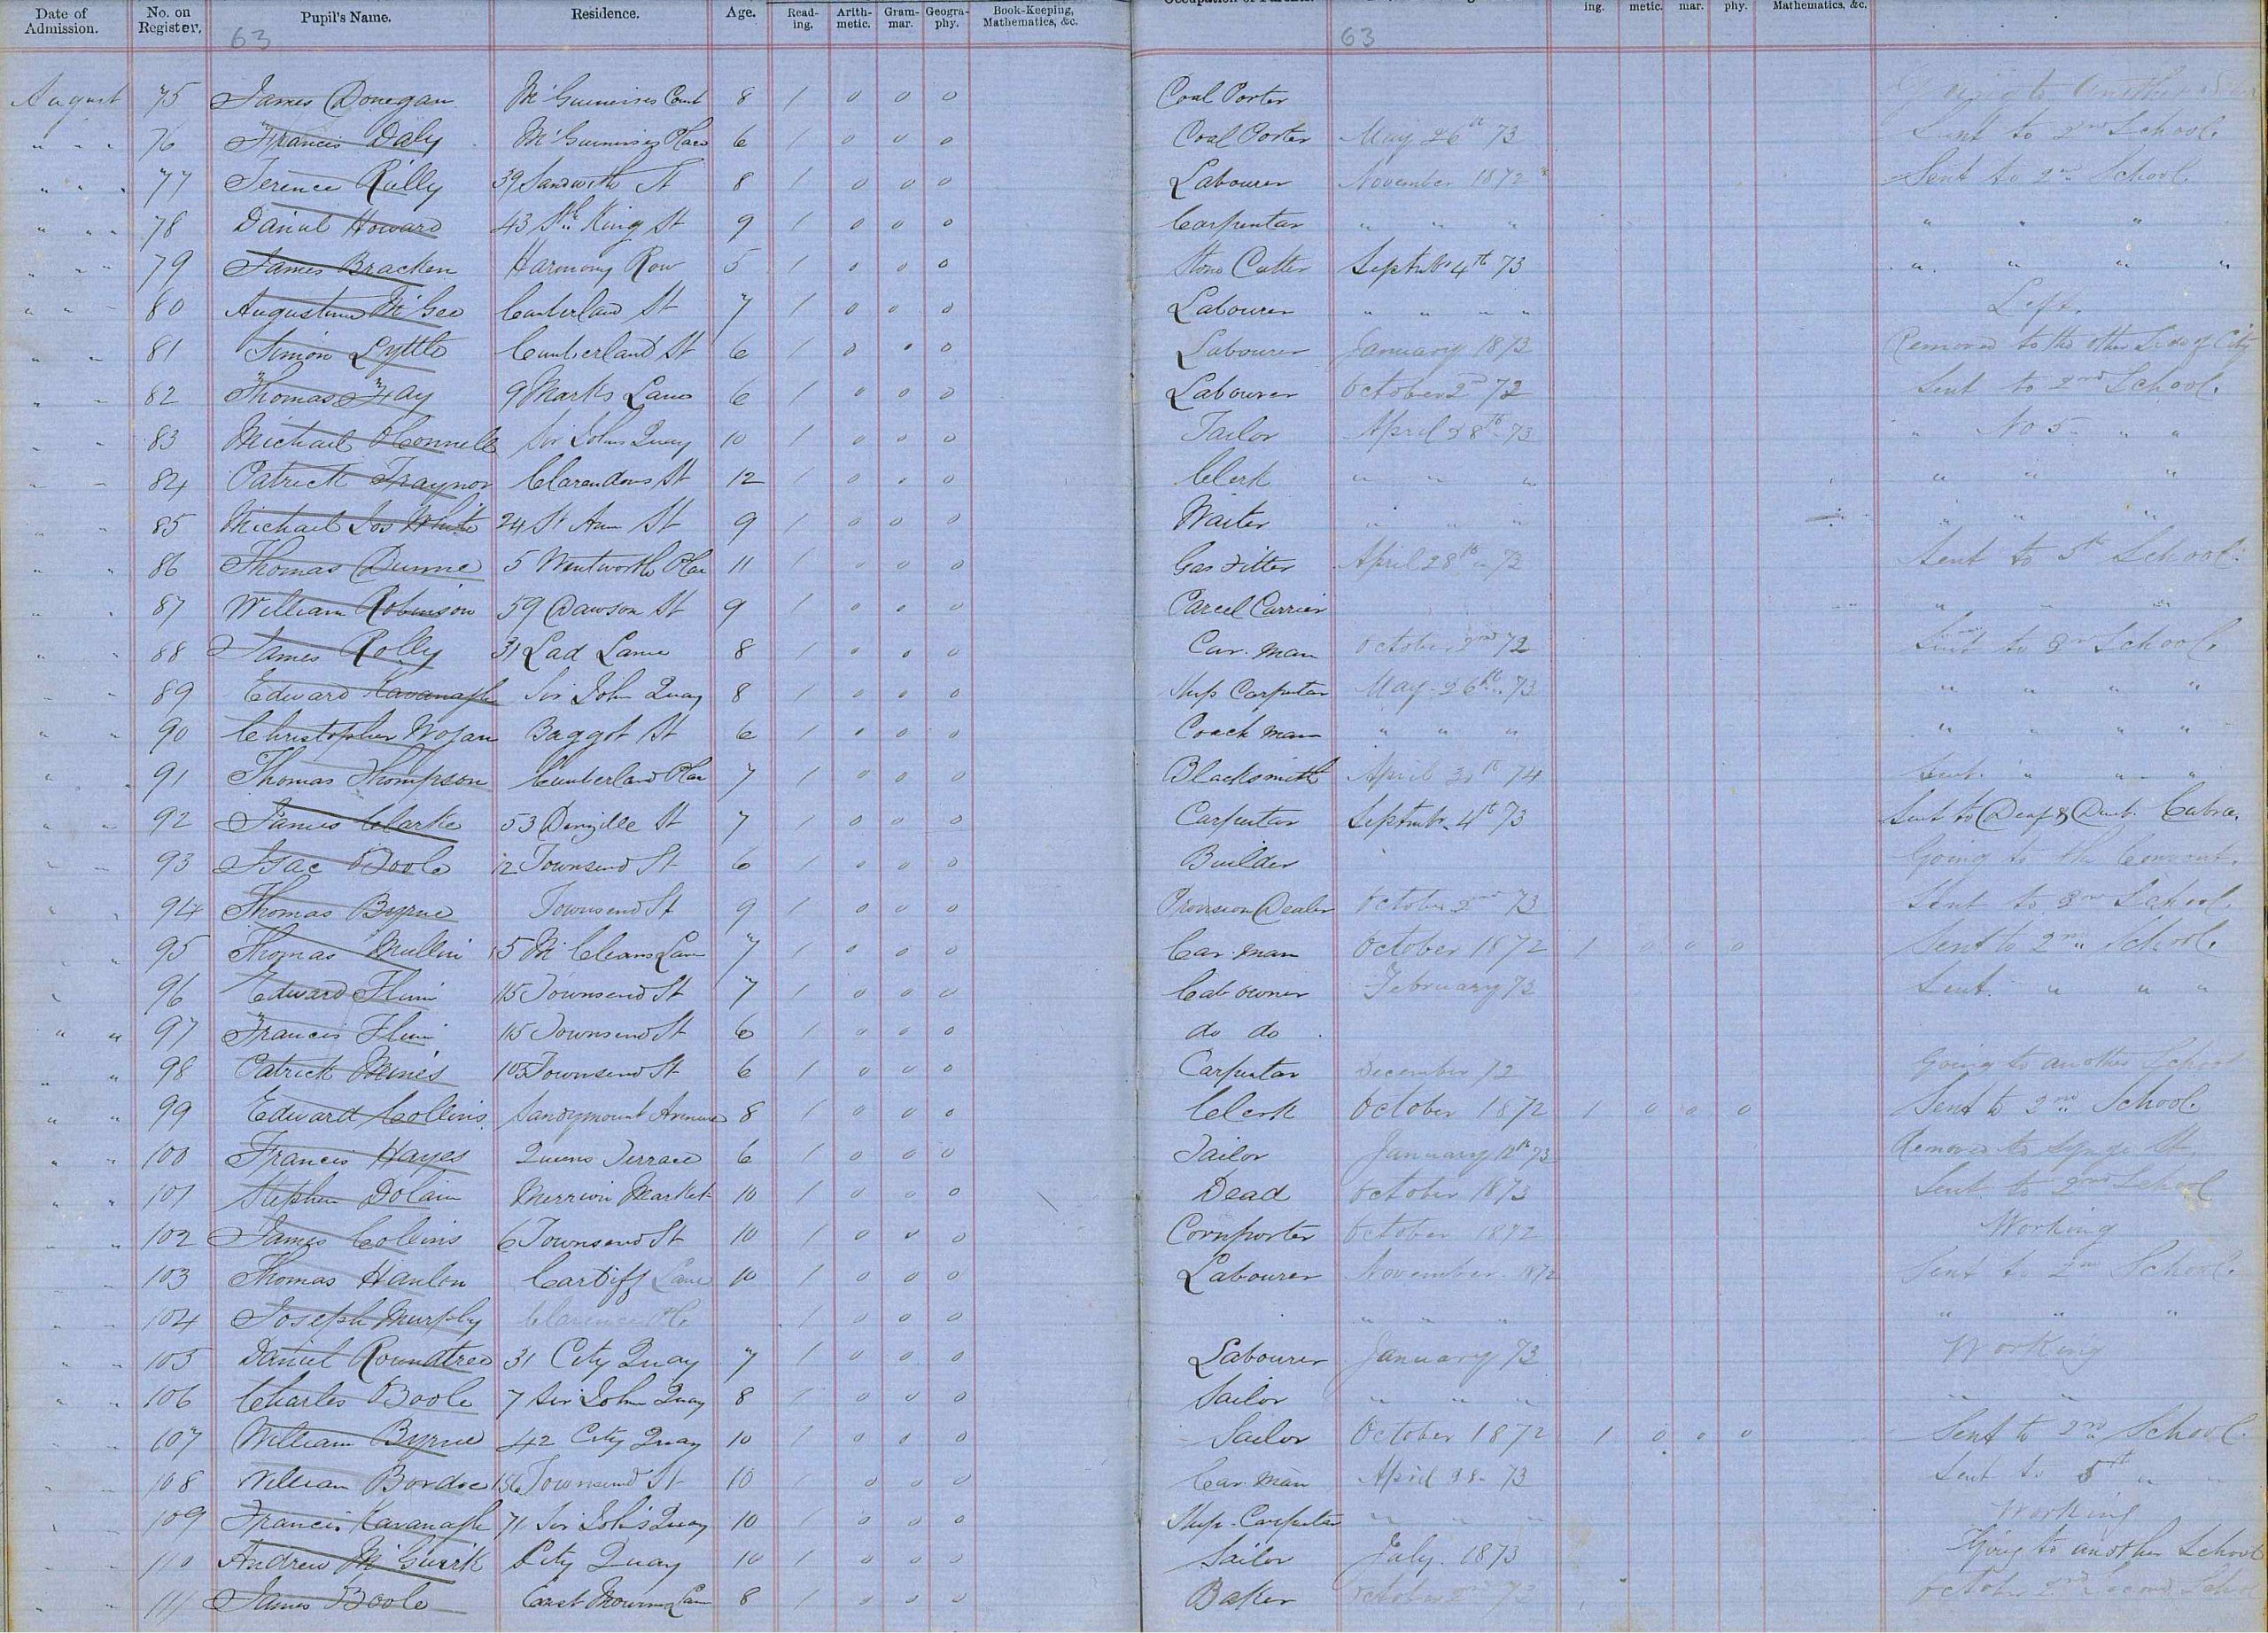 Date of Admission. No. on Register. Pupil's Name. Residence. Age. Read-ing. Arith-metic. Gram-mar. Geogra-phy. Book-Keeping, Mathematics, &c. ing. metic. mar. phy. Mathematics, &c.
63 63
August 75 James Donegan Mc Guinisses Court 8 1 0 0 0 Coal Porter to another
" " " 76 Francis Daly Mc Guinisses Place 6 1 0 0 0 Coal Porter May 26th 73 Sent to 2nd School.
" " " 77 Terence Reilly 39 Sandwith St 8 1 0 0 0 Labourer November 1872 Sent to 2nd School.
" " " 78 Daniel Howard 43 Sth King St 9 1 0 0 0 Carpenter " " " " " "
" " " 79 James Bracken Harmony Row 5 1 0 0 0 Stone Cutter Septmbr 4th 73 " " " "
" " " 80 Augustine Mc Gee Cumberland St 7 1 0 0 0 Labourer " " " " Left.
" " 81 Simon Lyttle Cumberland St 6 1 0 0 0 Labourer January 1873 Removed to the other Side of City
" " 82 Thomas Hay 9 Marks Lane 6 1 0 0 0 Labourer October 2nd 72 Sent to 2nd School.
" 83 Michael O'Connell Sir Johns Quay 10 1 0 0 0 Tailor April 28th 73 " No 5 " "
" " 84 Patrick Traynor Clarendons St 12 1 0 0 0 Clerk " " " " " "
" " 85 Michael Jos White 24 St Ann St 9 1 0 0 0 Waiter " " " " " "
" " 86 Thomas Dunne 5 Wentworth Place 11 1 0 0 0 Gas Fitter April 28th 73 Sent to 5th School.
" " 87 William Robinson 59 Dawson St 9 1 0 0 0 Parcel Carrier " " "
" " 88 James Rolly 31 Lad Lane 8 1 0 0 0 Car. Man October 2nd 72 Sent to 2nd School.
" " 89 Edward Kavanagh Sir John Quay 8 1 0 0 0 Ship Carpenter May 26th 73 " " " "
" " 90 Christopher Nogan Baggot St 6 1 0 0 0 Coach man " " " " " " "
" " 91 Thomas Thompson Cumberland Place 7 1 0 0 0 Blacksmith April 30th 74 Sent " " "
" " 92 James Clarke 53 Denzille St 7 1 0 0 0 Carpenter Septmbr. 4th 73 Sent to Deaf & Dumb. Cabra.
" " 93 Isac Boole 12 Townsend St 6 1 0 0 0 Builder Going to the Convent.
" " 94 Thomas Byrne Townsend St 9 1 0 0 0 Provision Dealer October 2nd 73 Sent to 2nd School.
" " 95 Thomas Mullin 15 Mc Cleans Lane 7 1 0 0 0 Car. Man October 1872 1 0 0 0 Sent to 2nd School.
" 96 Edward Flinn 115 Townsend St 7 1 0 0 0 Cab owner February 73 Sent " " "
" " 97 Francis Flinn 115 Townsend St 6 1 0 0 0 do do
" " 98 Patrick Mines 105 Townsend St 6 1 0 0 0 Carpenter December 72 Going to another School
" " 99 Edward Collins Sandymount Avenue 8 1 0 0 0 Clerk October 1872 1 0 0 0 Sent to 2nd School.
" " 100 Francis Hayes Queens Terrace 6 1 0 0 0 Tailor January 12th 73 Removed to Synge St.
" " 101 Stephen Dolain Merrion Market 10 1 0 0 0 Dead October 1873 Sent to 2nd School
" " 102 James Collins 6 Townsend St 10 1 0 0 0 Cornporter October 1872 Working
" 103 Thomas Hanlon Cardiff Lane 10 1 0 0 0 Labourer November 1872 Sent to 2nd School.
" " 104 Joseph Murphy Clarence Pl 1 0 0 0 " " " " " "
" " 105 Daniel Roundtree 31 City Quay 7 1 0 0 0 Labourer January 73 Working
" " 106 Charles Boole 7 Sir John Quay 8 1 0 0 0 Sailor " " " " "
" " 107 William Byrne 42 City Quay 10 1 0 0 0 Sailor October 1872 1 0 0 0 Sent to 2nd School.
" " 108 William Bordic 156 Townsend St 10 0 0 0 Car Man April 28 73 Sent to 5th "
" " 109 Francis Kavanagh 71 Sir Johns Quay 10 1 0 0 0 Ship. Carpenter " " " Working
" " 110 Andrew Mc Guirk City Quay 10 1 0 0 0 Sailor July. 1873 Going to another School
" " 111 James Boole East Mourn Lane 8 1 0 0 0 Baker October 2nd 72 October 2nd Second School